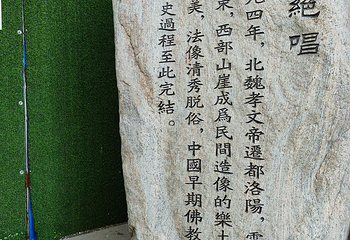 絶唱
九四年，北魏孝文帝遷都洛陽，
東，西部山崖成爲民間造像的樂土
美，法像清秀脱俗，中國早期佛教
史過程至此完結。